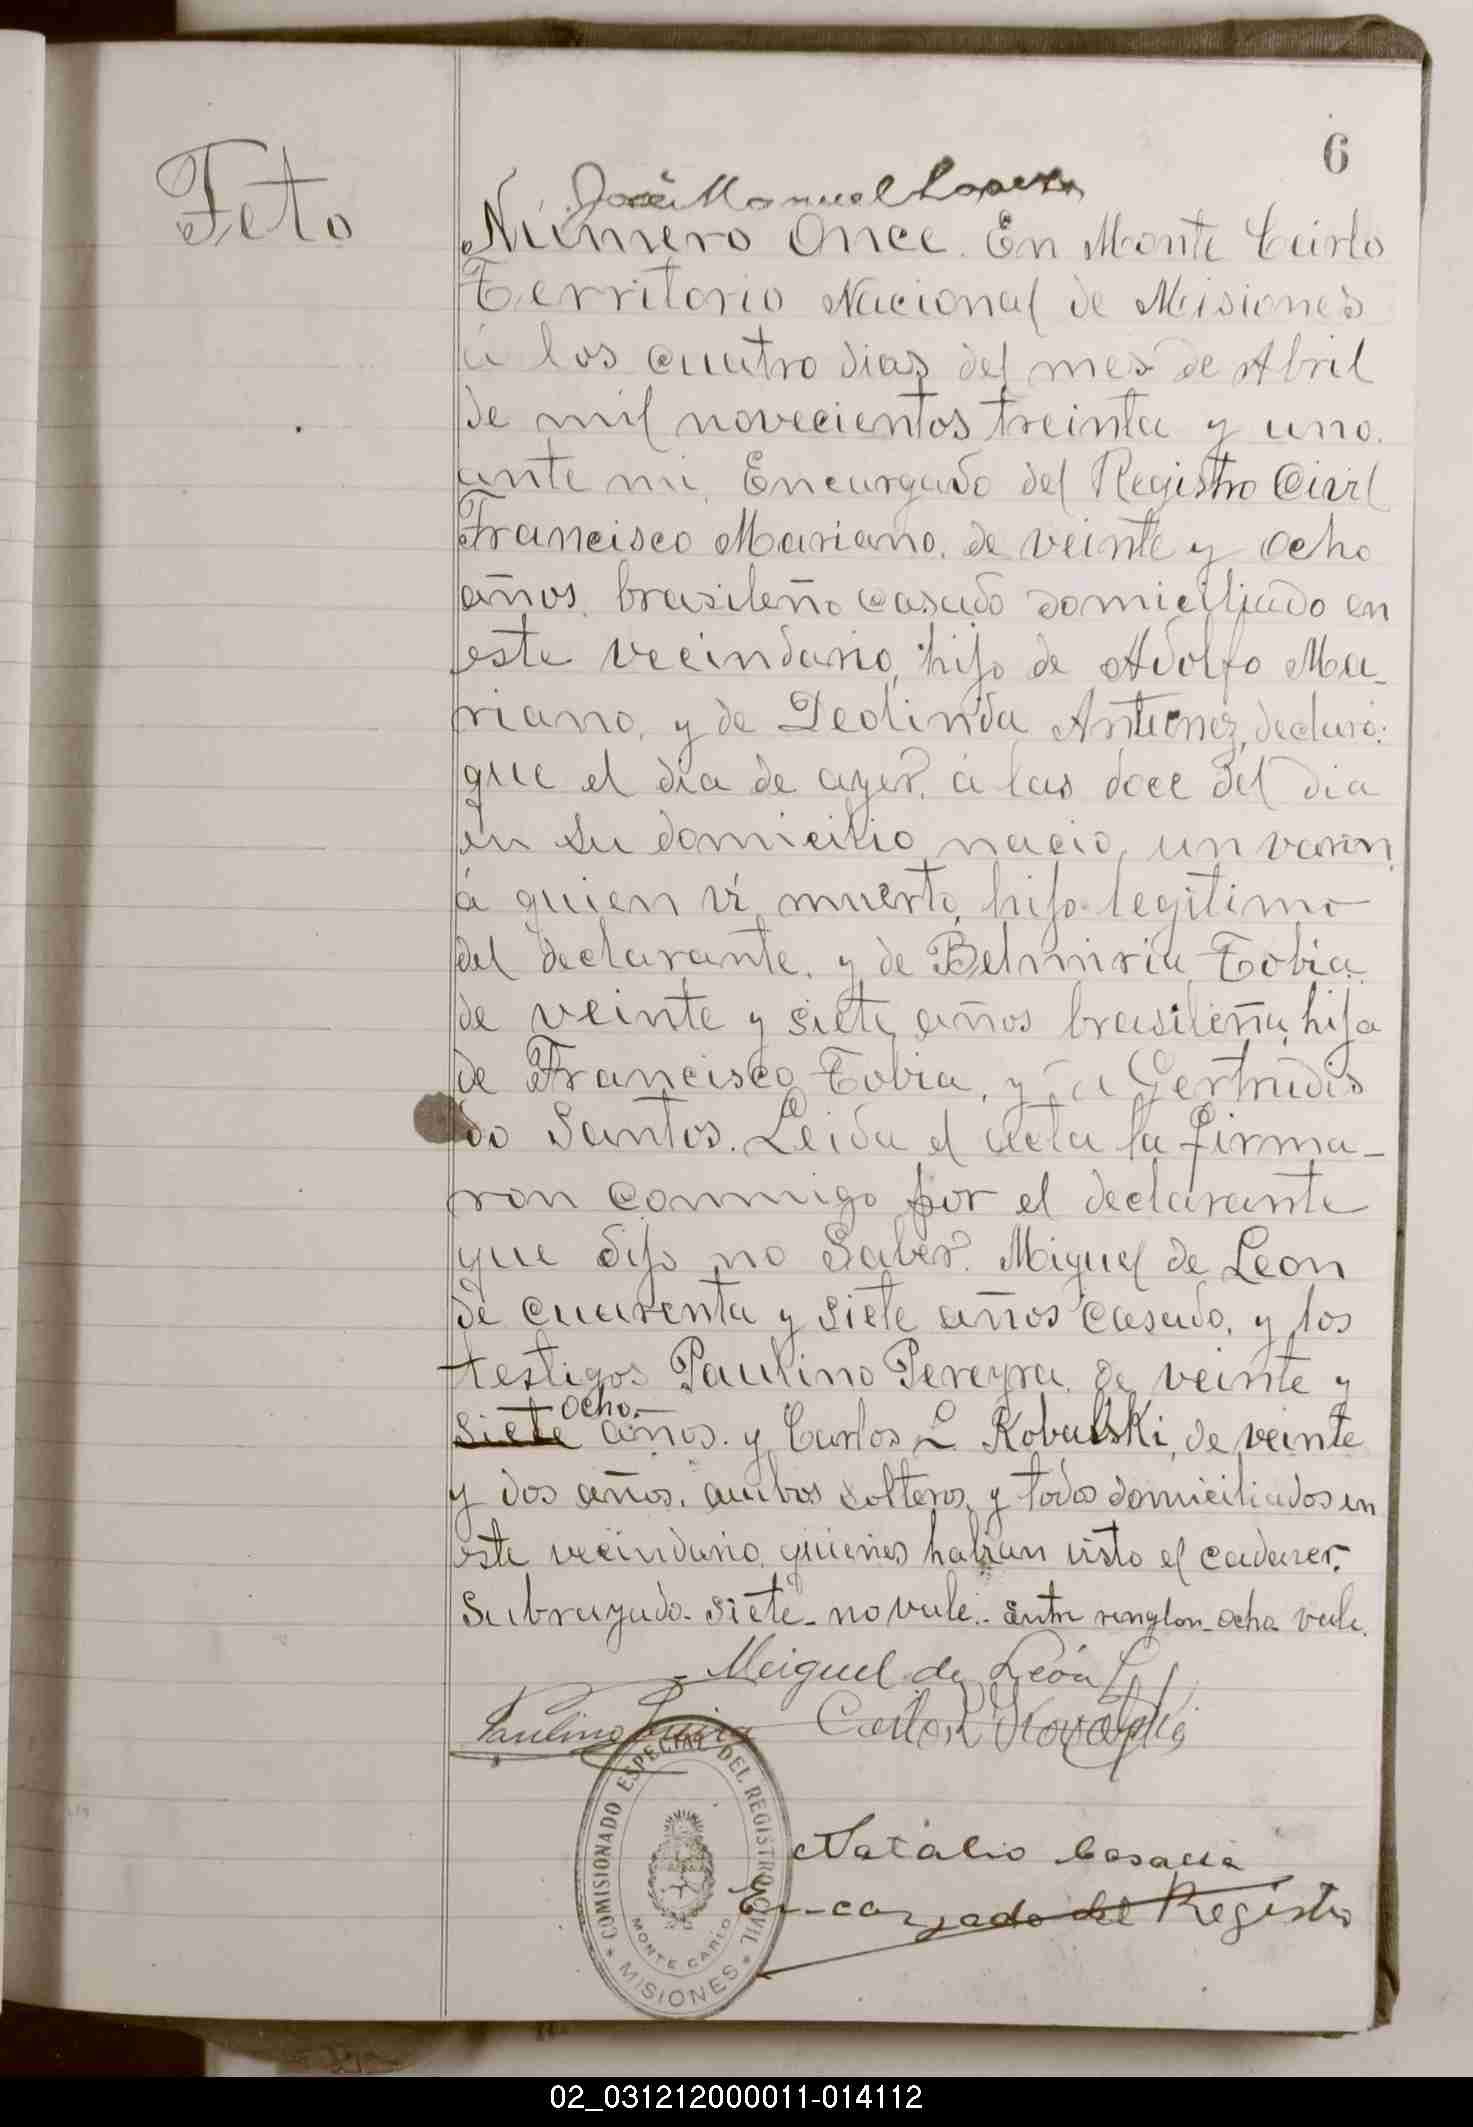 6
Feto
José Manuel Lopez
Número Once. En Monte Carlo
Territorio Nacional de Misiones
á los cuatro dias del mes de Abril
de mil novecientos treinta y uno.
ante mi, Encargado del Registro Civil
Francisco Mariano, de veinte y ocho
años, brasileño casado domiciliado en
este vecindario, hijo de Adolfo Ma-
riano, y de Deolinda Antunez, declaró:
que el dia de ayer, á las doce del dia
en su domicilio nació, un varon,
á quien ví muerto, hijo legitimo
del declarante, y de Belmiria Tobia
de veinte y siete años brasileña, hija
de Francisco Tobia, y Gertrudis
do Santos. Leida el acta la firma-
ron conmigo por el declarante
que dijo no saber, Miguel de Leon
de cuarenta y siete años casado, y los
testigos Paulino Pereyra, de veinte y
ocho
siete años, y Carlos L Kobalski, de veinte
y dos años, ambos solteros, y todos domiciliados en
este vecindario, quienes habian visto el cadaver.
Subrayado - siete - no vale - Entre renglon - ocho vale.
Miguel de León
Paulino
Carlos
COMISIONADO ESPECIAL DEL REGISTRO CIVIL
MONTE CARLO
* MISIONES *
Natalio
Encargado del Registro
02_031212000011-014112